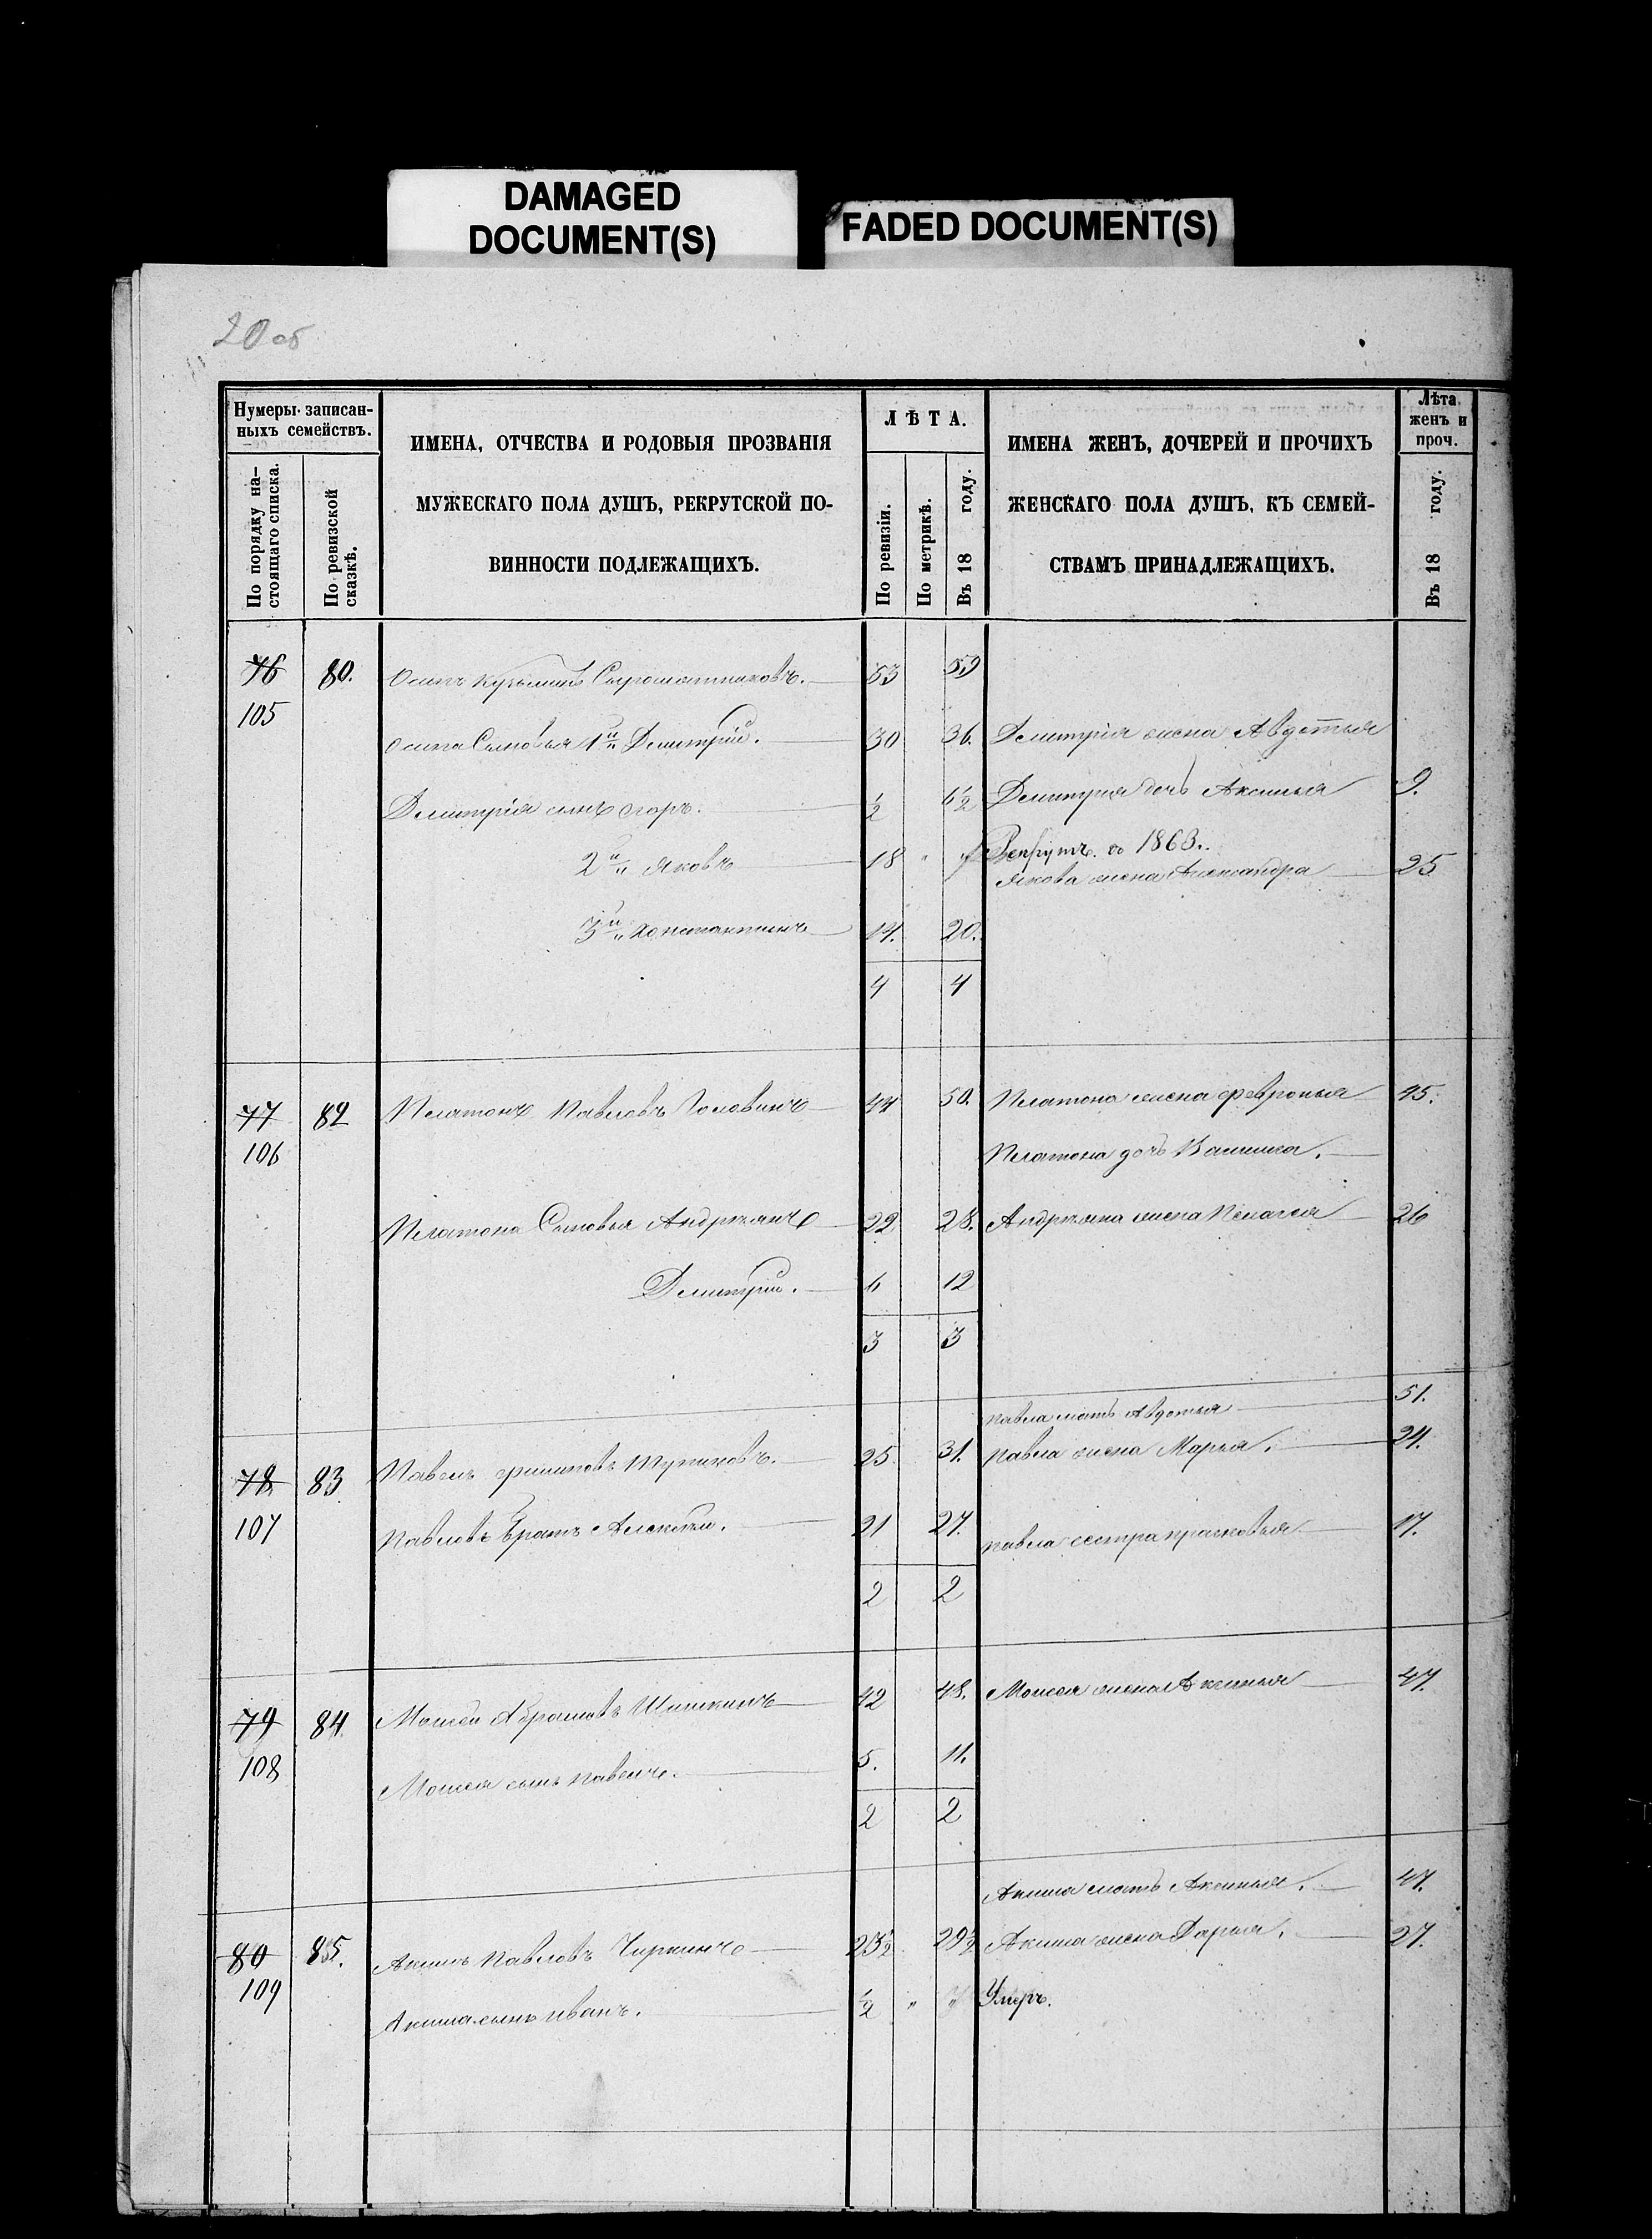 DAMAGED
DOCUMENT(S)
FADED DOCUMENT(S)
20 об
Нумеры записан-
ныхъ семействъ.
По порядку на-
стоящаго списка.
По ревизской
сказкѣ.
ИМЕНА, ОТЧЕСТВА И РОДОВЫЯ ПРОЗВАНІЯ
МУЖЕСКАГО ПОЛА ДУШЪ, РЕКРУТСКОЙ ПО-
ВИННОСТИ ПОДЛЕЖАЩИХЪ.
ЛѢТА.
По ревизіи.
По метрикѣ.
Въ 18 году.
ИМЕНА ЖЕНЪ, ДОЧЕРЕЙ И ПРОЧИХЪ
ЖЕНСКАГО ПОЛА ДУШЪ, КЪ СЕМЕЙ-
СТВАМЪ ПРИНАДЛЕЖАЩИХЪ.
Лѣта
женъ и
проч.
Въ 18 году.
76 80. Осипъ Кузьминъ Сыромятниковъ. 53 59
105
Осипа Сыновья 1й Дмитрій. 30 36. Дмитрія жена Авдотья
Дмитрія сынъ Егоръ. ½ 6½ Дмитрия дочь Аксинья 9.
2й Яковъ 18 " Рекрутъ. въ 1863.
Якова жена Александра 25
3й Константинъ 14. 20.
4 4
77 82 Платонъ Павловъ Головинъ 44 50. Платона жена Февронья 45.
106
Платона дочь
Платона Сыновья Андреянъ 22 28. Андреяна жена Пелагея 26
Дмитрій. 6 12
3 3
Павла мать Авдотья 51.
78 83 Павелъ Филиповъ 25 31. Павла жена Марья. 24.
107
Павловъ братъ Алексѣй. 21 27. Павла сестра Прасковья 17.
2 2
79 84. Моисей Абрамовъ Шишкинъ 42 48. Моисея жена Аксинья 47.
108
Моисея сынъ Павелъ. 5. 11.
2 2
Акима мать Аксинья. 47.
80 85. Акимъ Павловъ Чиркинъ 23½ 29½ Акима жена Дарья. 27.
109
Акима сынъ Иванъ. ½ " " Умеръ.